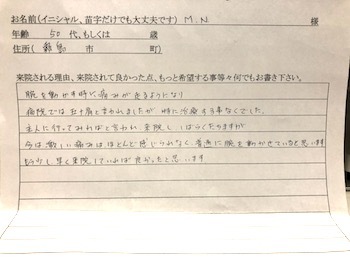 お名前(イニシャル、苗字だけでも大丈夫です) M.N 様
年齢 50 代、もしくは 歳
住所( 市 町)
来院される理由、来院されて良かった点、もっと希望する事等々何でもお書き下さい。
腕を動かす時に痛みが走るようになり
病院では五十肩と言われましたが特に治療する事なくでした。
主人に行ってみればと言われ来院し しばらくたちますが
今は激しい痛みはほとんど感じられなく、普通に腕を動かせていると思います
もう少し早く来院していれば良かったと思います